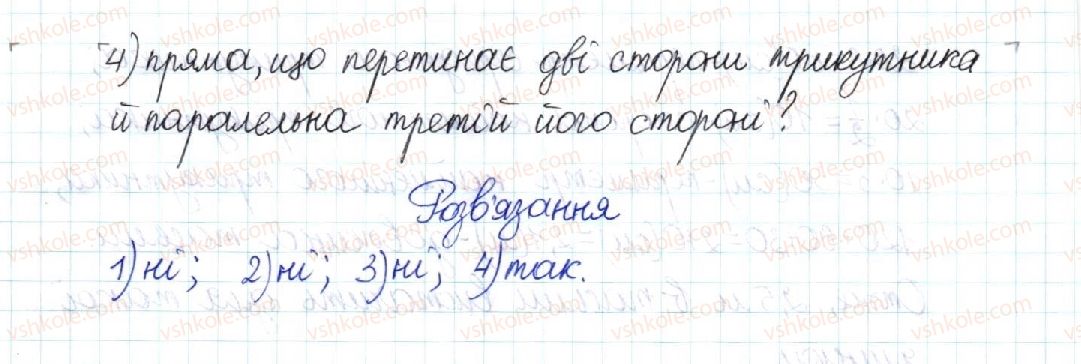 4) пряма, що перетинає дві сторони трикутника
й паралельна третій його стороні?
Розв'язання
1) ні; 2) ні; 3) ні; 4) так.